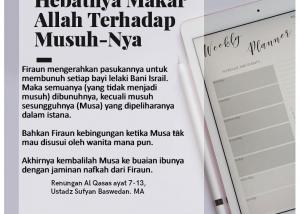 Hebatnya Makar
Allah Terhadap
Musuh-Nya
Firaun mengerahkan pasukannya untuk
membunuh setiap bayi lelaki Bani Israil.
Maka semuanya (yang tidak menjadi
musuh) dibunuhnya, kecuali musuh
sesungguhnya (Musa) yang dipeliharanya
dalam istana.
Bahkan Firaun kebingungan ketika Musa tak
mau disusui oleh wanita mana pun.
Akhirnya kembalilah Musa ke buaian ibunya
dengan jaminan nafkah dari Firaun.
Renungan Al Qasas ayat 7-13,
Ustadz Sufyan Baswedan. MA
Weekly
Planner